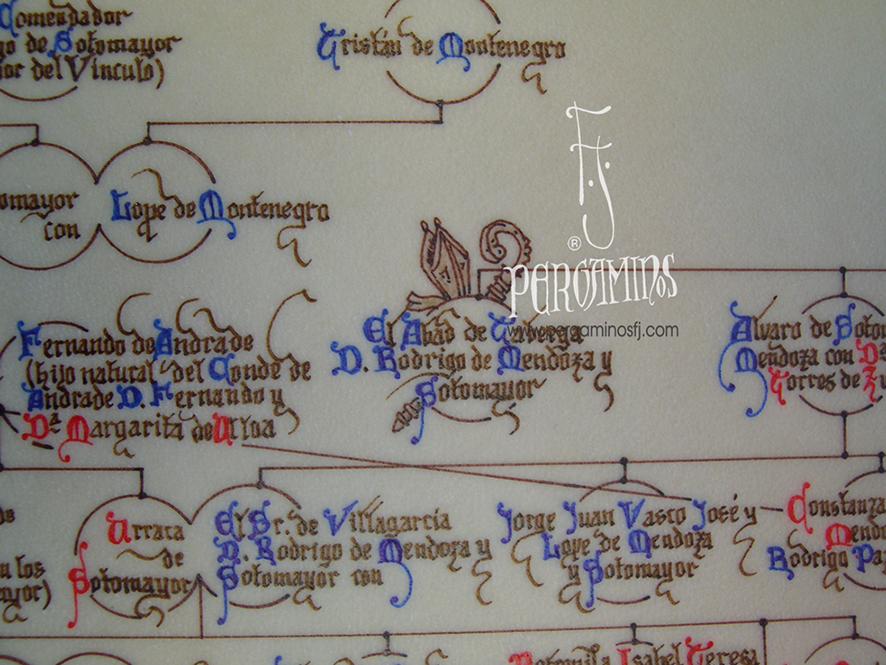 Comendador
go de Sotomayor
or del Vinculo)
Tristán de Montenegro
omayor
con
Lope de Montenegro
F.J.
®
PERGAMINOS
www.pergaminosfj.com
Fernando de Andrade
(hijo natural del Conde de
Andrade D. Fernando y
Dª Margarita de Ulloa
El Abad de
D. Rodrigo de Mendoza y
Sotomayor
Alvaro de Soto
Mendoza con Dª
Torres de
Urraca
de
Sotomayor
El Sr. de Villagarcía
D. Rodrigo de Mendoza y
Sotomayor con
Jorge Juan Vasco José y
Lope de Mendoza
y Sotomayor
Constanza
Mendo
Rodrigo Pa
u los
Isabel Teresa